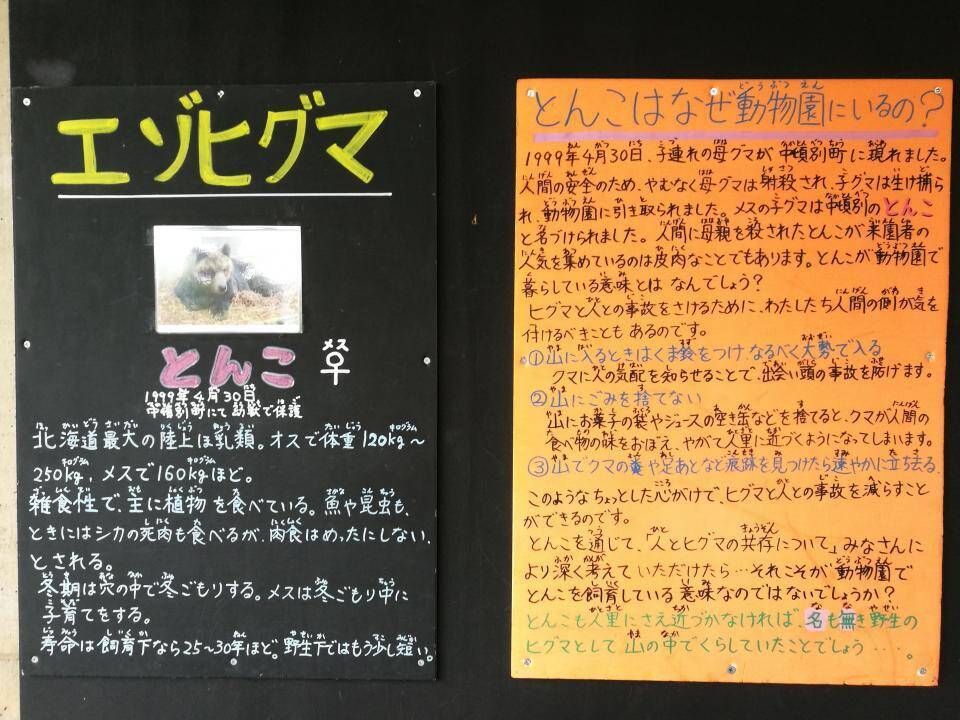 エゾヒグマ
とんこ ♀
メス
1999年4月30日
中頓別町にて幼獣で保護
北海道最大の陸上ほ乳類。オスで体重120kg~
250kg、メスで160kgほど。
雑食性で、主に植物を食べている。魚や昆虫も、
ときにはシカの死肉も食べるが、肉食はめったにしない、
とされる。
冬期は穴の中で冬ごもりする。メスは冬ごもり中に
子育てをする。
寿命は飼育下なら25~30年ほど。野生下ではもう少し短い。
とんこはなぜ動物園にいるの?
1999年4月30日、子連れの母グマが中頓別町に現れました。
人間の安全のため、やむなく母グマは射殺され、子グマは生け捕ら
れ、動物園に引き取られました。メスの子グマは中頓別のとんこ
と名づけられました。人間に母親を殺されたとんこが来園者の
人気を集めているのは皮肉なことでもあります。とんこが動物園で
暮らしている意味とは なんでしょう?
ヒグマと人との事故をさけるために、わたしたち人間の側が気を
付けるべきことも あるのです。
①山に入るときはくま鈴をつけ、なるべく大勢で入る
クマに人の気配を知らせることで、出会い頭の事故を防げます。
②山にごみを捨てない
山にお菓子の袋やジュースの空き缶などを捨てると、クマが人間の
食べ物の味をおぼえ、やがて人里に近づくようになってしまいます。
③山でクマの糞や足あとなど痕跡を見つけたら速やかに立ち去る。
このようなちょっとした心がけで、ヒグマと人との事故を減らすこと
ができるのです。
とんこを通じて、「人とヒグマの共存について」みなさんに
より深く考えて いただけたら…それこそが 動物園で
とんこを飼育している 意味なのではないでしょうか?
とんこも人里にさえ近づかなければ、名も無き野生の
ヒグマとして 山の中でくらしていたことでしょう‥‥。